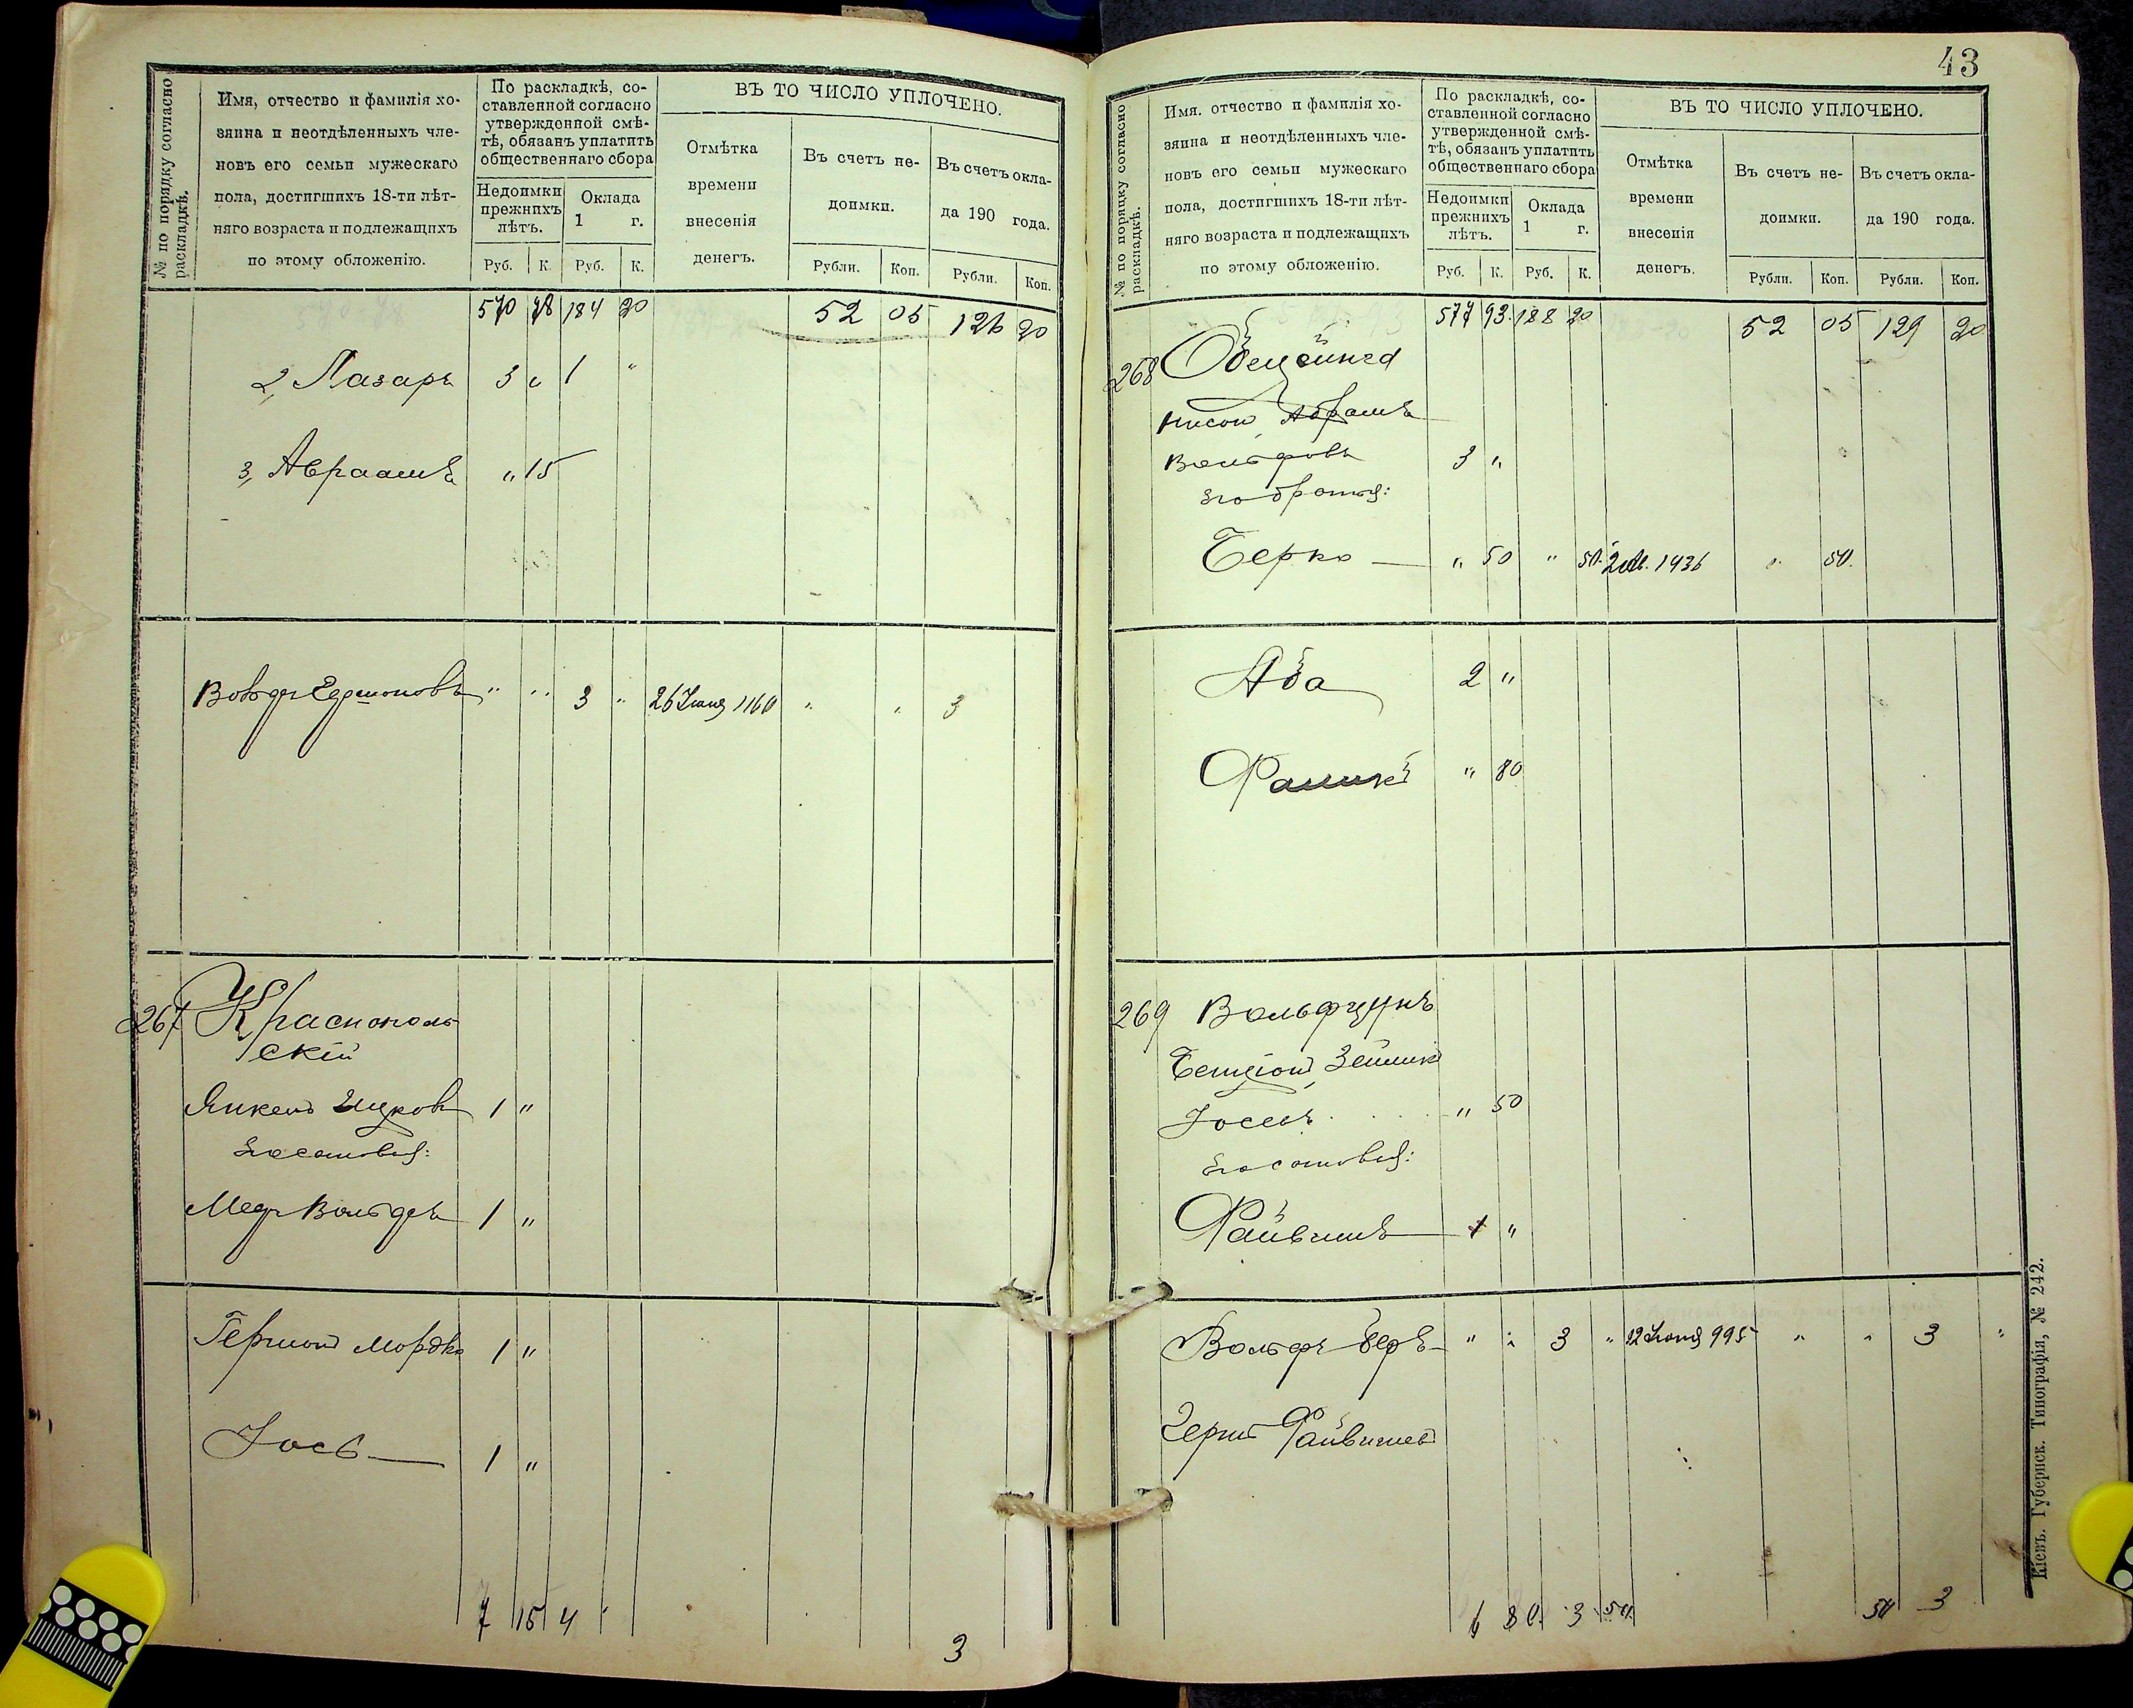 № по порядку согласно раскладкѣ.
Имя, отчество и фамилія хо-
зяина и неотдѣленныхъ чле-
новъ его семьи мужескаго
пола, достигшихъ 18-ти лѣт-
няго возраста и подлежащихъ
по этому обложенію.
По раскладкѣ, со-
ставленной согласно
утвержденной смѣ-
тѣ, обязанъ уплатить
общественнаго сбора
Недоимки
прежнихъ
лѣтъ.
Оклада
1 г.
Руб. К. Руб. К.
ВЪ ТО ЧИСЛО УПЛОЧЕНО.
Отмѣтка
времени
внесенія
денегъ.
Въ счетъ не-
доимки.
Въ счетъ окла-
да 190 года.
Рубли. Коп. Рубли. Коп.
570 78 184 20 52 05 126 20
2, Лазаръ 3 " 1 "
3, Авраамъ " 15
Вольфъ " " 3 " 26 Іюня 1160 " " 3
267 Краснополь
скій
Янкель Ицков 1 "
его сыновья:
Меер Вольфъ 1 "
Гершон Мордко 1 "
Іось 1 "
7 15 4
3
43
№ по порядку согласно раскладкѣ.
Имя. отчество и фамилія хо-
зяина и неотдѣленныхъ чле-
новъ его семьи мужескаго
пола, достигшихъ 18-ти лѣт-
няго возраста и подлежащихъ
по этому обложенію.
По раскладкѣ, со-
ставленной согласно
утвержденной смѣ-
тѣ, обязанъ уплатить
общественнаго сбора
Недоимки
прежнихъ
лѣтъ.
Оклада
1 г.
Руб. К. Руб. К.
ВЪ ТО ЧИСЛО УПЛОЧЕНО.
Отмѣтка
времени
внесенія
денегъ.
Въ счетъ не-
доимки.
Въ счетъ окла-
да 190 года.
Рубли. Коп. Рубли. Коп.
577 93 188 20 52 05 129 20
268
Нисон Абрамъ
Вольфовъ 3 "
его братья:
Берко " 50 " 50 1936 " 50
Аба 2 "
" 80
269 Вольфцунъ
Бенціон Зейлик
Іосевъ " 50
его сыновья:
Файвишъ 1 "
Вольфъ Беръ " " 3 " 12 Іюня 995 " " 3 "
Герш Файвишев
6 80 3 50 50 3
Кіевъ. Губернск. Типографія, № 242.